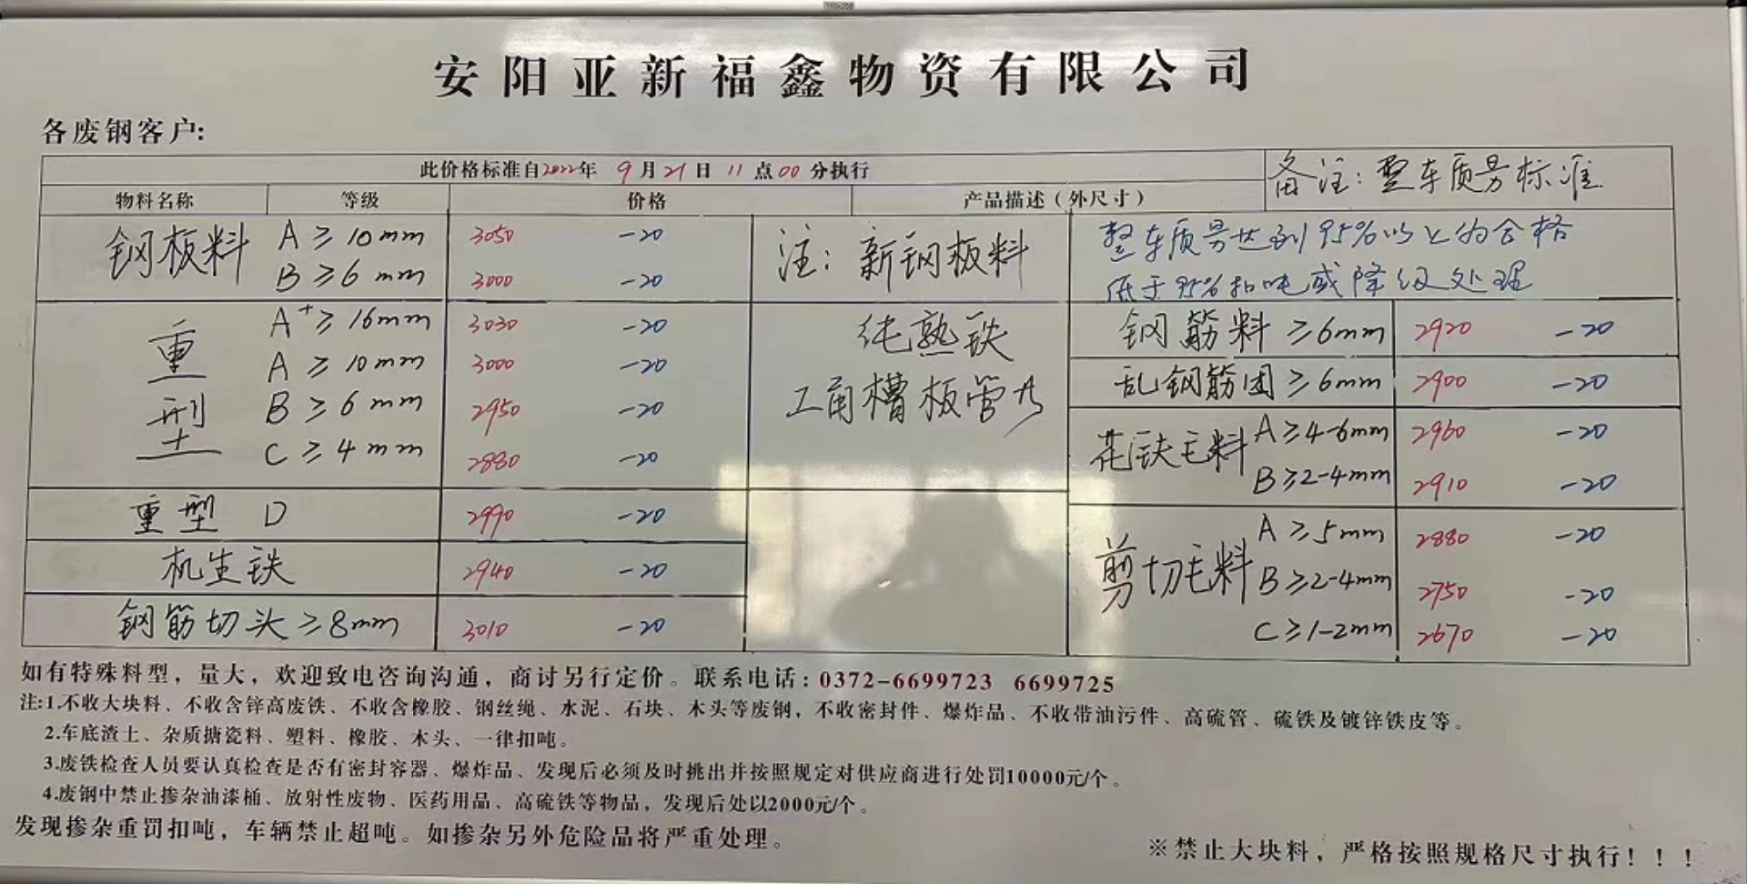 安阳亚新福鑫物资有限公司
各废钢客户:
此价格标准自2022年 9月21日 11点00分执行
备注:整车质量标准
物料名称 等级 价格 产品描述(外尺寸)
钢板料 A≥10mm 3050 -20
B≥6mm 3000 -20
注:新钢板料
整车质量达到95%以上为合格
低于95%扣吨或降级处理
重型 A+≥16mm 3030 -20
A≥10mm 3000 -20
B≥6mm 2950 -20
C≥4mm 2880 -20
纯熟铁
工角槽板管
重型 D 2990 -20
机生铁 2940 -20
钢筋切头≥8mm 3010 -20
钢筋料≥6mm 2920 -20
乱钢筋团≥6mm 2900 -20
花铁毛料 A≥4-6mm 2960 -20
B≥2-4mm 2910 -20
剪切毛料 A≥5mm 2880 -20
B≥2-4mm 2750 -20
C≥1-2mm 2670 -20
如有特殊料型,量大,欢迎致电咨询沟通,商讨另行定价。联系电话:0372-6699723 6699725
注:1.不收大块料、不收含锌高废铁、不收含橡胶、钢丝绳、水泥、石块、木头等废钢,不收密封件、爆炸品、不收带油污件、高硫管、硫铁及镀锌铁皮等。
2.车底渣土、杂质搪瓷料、塑料、橡胶、木头、一律扣吨。
3.废铁检查人员要认真检查是否有密封容器、爆炸品、发现后必须及时挑出并按照规定对供应商进行处罚10000元/个。
4.废钢中禁止掺杂油漆桶、放射性废物、医药用品、高硫铁等物品,发现后处以2000元/个。
发现掺杂重罚扣吨,车辆禁止超吨。如掺杂另外危险品将严重处理。
※禁止大块料,严格按照规格尺寸执行!!!